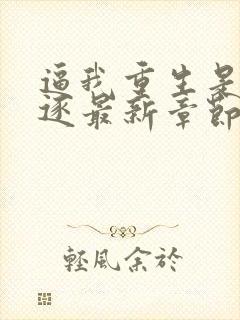 逼我重生是
逐最新章節
輕風余於